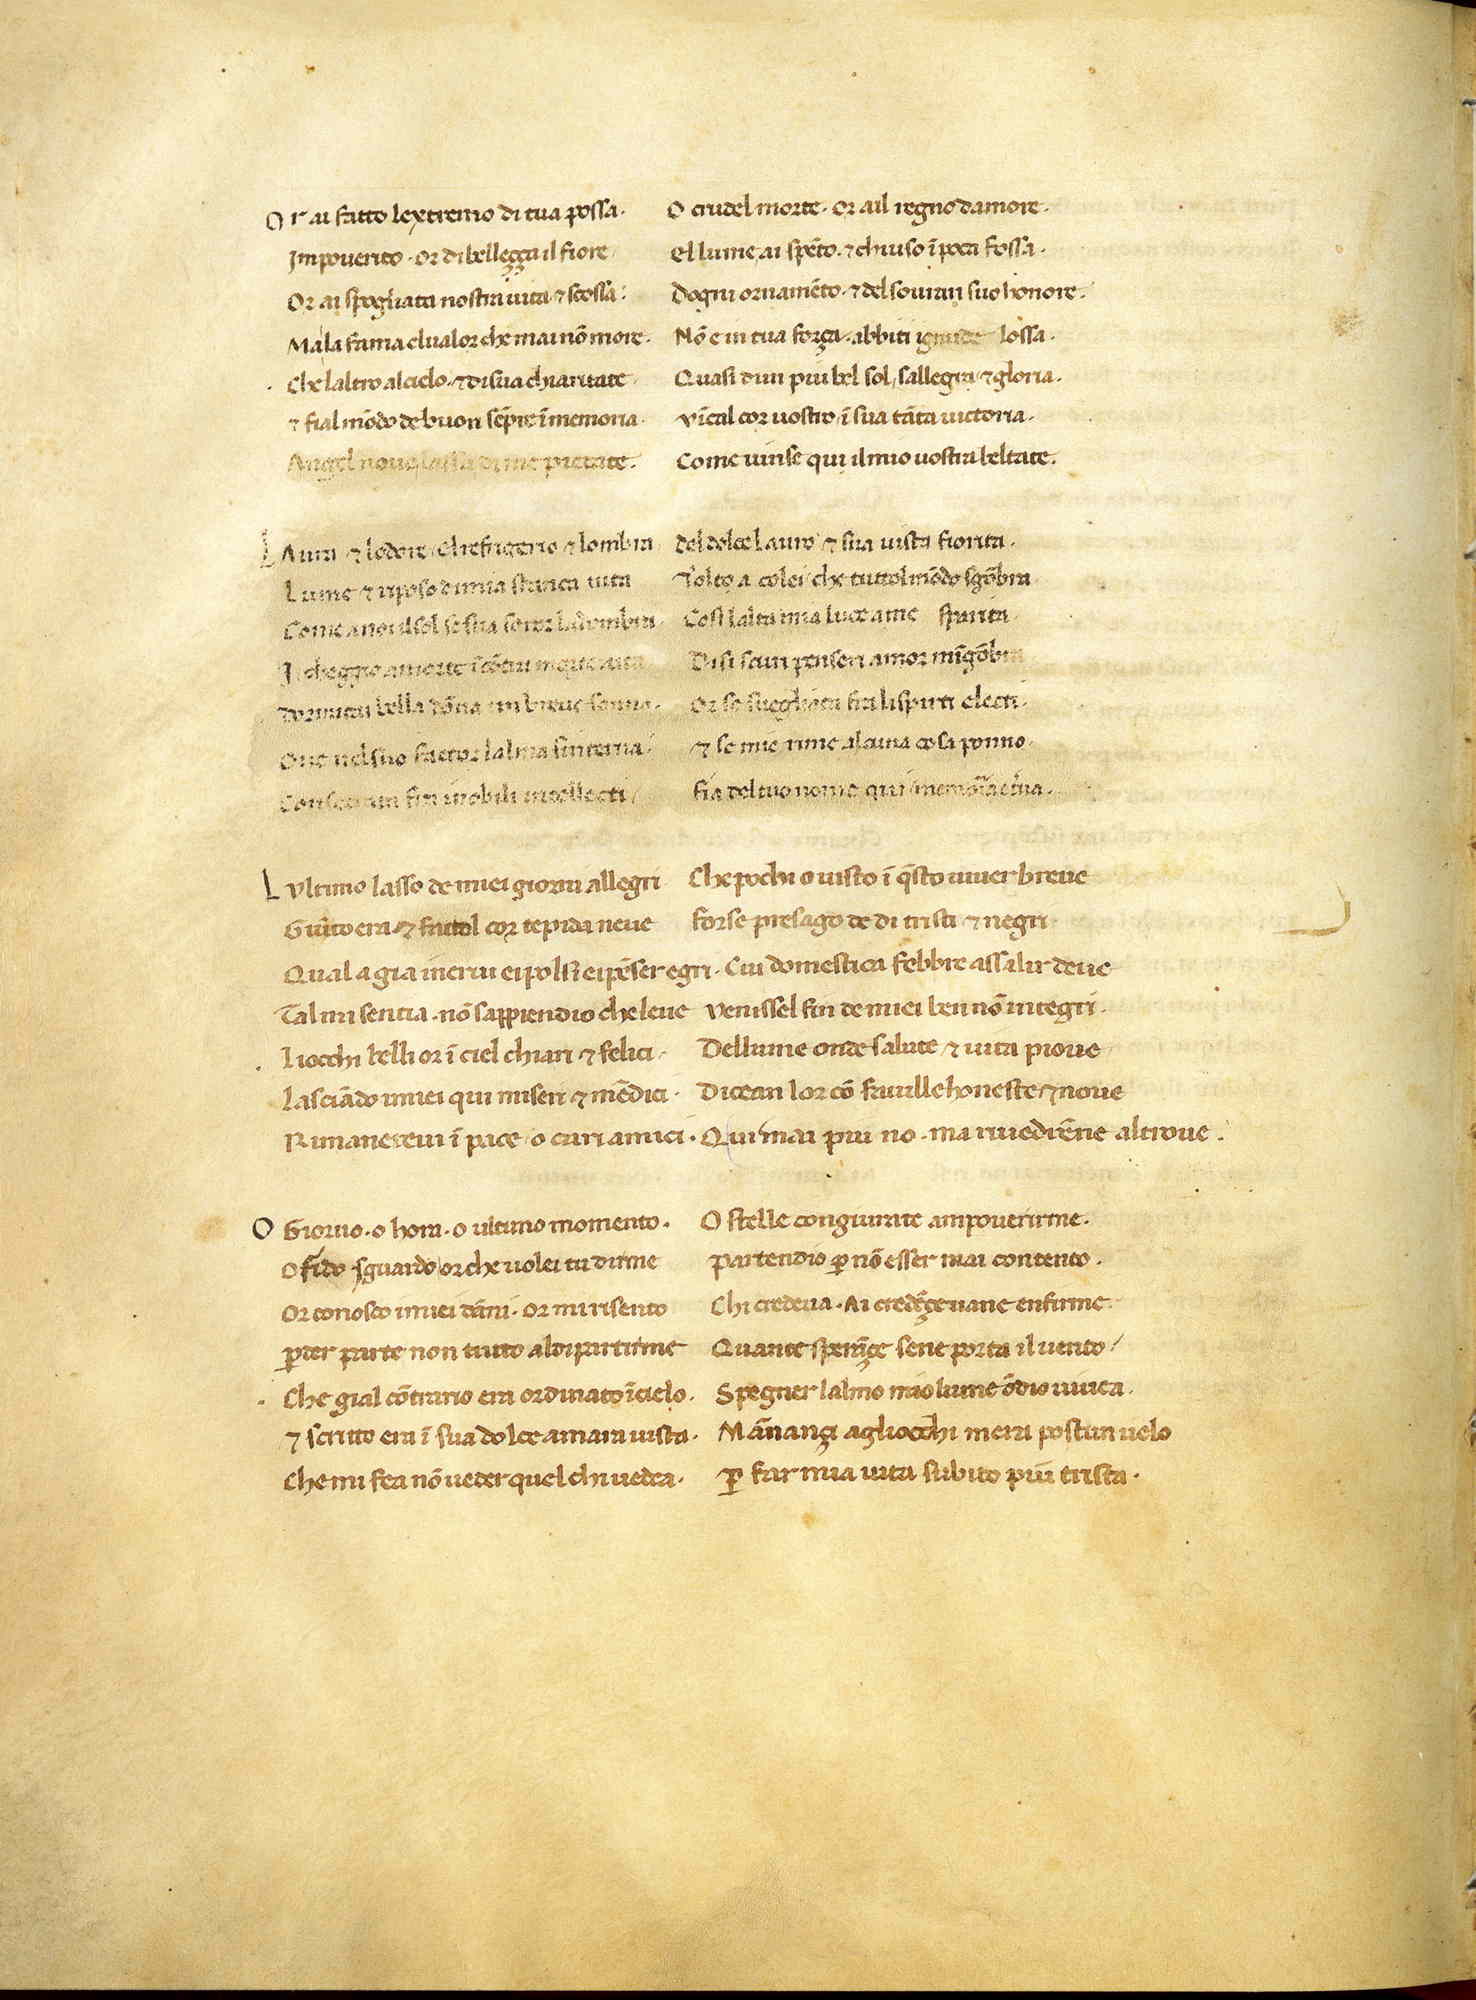 Or ai fatto lextremo di tua possa. O crudel morte. Or ail regno damore.
Impouerito. Or di belleçça il fiore El lume ai spēto. ⁊ chiuso ī poca fossa.
Or ai spogliata nostra uita ⁊ scossa. Dogni ornamēto. ⁊ del souran suo honore.
Ma la fama elualor che mai nō more. Nō e in tua força. abbiti ignude lossa.
Che laltro a lcielo. ⁊ di sua chiaritate Quasi dun piu bel sol, sallegra ⁊ gloria.
⁊ fial mōdo de buon sēpre ī memoria. Vīcal cor uostro ī sua tāta uictoria.
Angel nouo lassu di me pietate. Come uinse qui il mio uostra beltate.
Laura ⁊ lodore el refrigerio ⁊ lombra Del dolce lauro ⁊ sua uista fiorita.
Lume ⁊ riposo di mia stanca uita Tolto a colei che tuttol mōdo sgōbra
Come a noi il sol se sua soror ladombra. Cosi lalta mia luce a me sparita.
I cheggio a morte īcōtra morte aita Di si scuri penseri amor mīgōbra
Dormitai bella dōna un breue sonno. Or se suegliata fra li spirti electi.
Oue nel suo factor lalma sinterna. ⁊ se mie rime alcuna cosa ponno.
Consecrata fra i nobili intellecti Fia del tuo nome qui memoria eterna.
Lvltimo lasso de miei giorni allegri Che pochi o uisto ī q̄sto uiuer breue
Giūto era. ⁊ fattol cor tepida neue Forse presago de di tristi ⁊ negri
Qual a gia i nerui ei polsi ei pēser egri. Cui domestica febbre assalir deue
Tal mi sentia. nō sappiendio che leue Venissel fin de miei ben nō integri.
Li occhi belli or ī ciel chiari ⁊ felici. Del lume onde salute ⁊ uita pioue
Lasciādo i miei qui miseri ⁊ mēdici. Dicean lor cō fauille honeste ⁊ noue
Rimaneteui ī pace o cari amici. Qui mai piu no. ma riuedrēne altroue.
O Giorno. o hora. o ultimo momento. O stelle congiurate ampouerirme.
O fido sguardo or che uolei tu dirme partendio ꝑ nō esser mai contento.
Or conosco i miei dāni. Or mi risento Chi credeua. Ai credēçe uane enfirme.
ꝑder parte non tutto al dipartirme Quante sperāçe sene porta il uento
Che gial cōtrario era ordinato ī cielo. Spegner lalmo mio lume ōdio uiuea.
⁊ scritto era ī sua dolce amara uista. Ma īnançi agliocchi mera postun uelo
Che mi fea nō ueder quel chi uedea. ꝑ far mia uita subito piu trista.